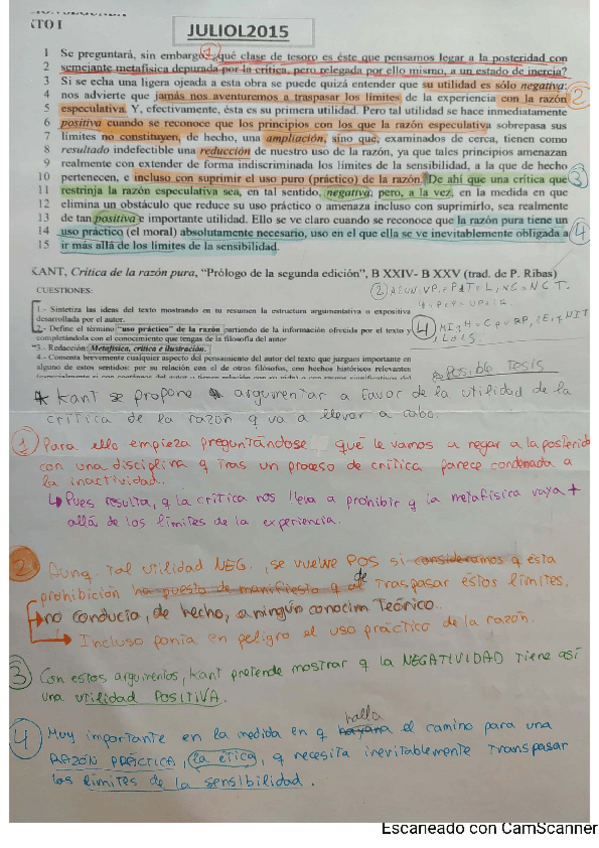 XTO I
JULIOL2015
1 Se preguntará, sin embargo, ¿qué clase de tesoro es éste que pensamos legar a la posteridad con
2 semejante metafísica depurada por la crítica, pero relegada por ello mismo, a un estado de inercia?
3 Si se echa una ligera ojeada a esta obra se puede quizá entender que su utilidad es sólo negativa:
4 nos advierte que jamás nos aventuremos a traspasar los límites de la experiencia con la razón
5 especulativa. Y, efectivamente, ésta es su primera utilidad. Pero tal utilidad se hace inmediatamente
6 positiva cuando se reconoce que los principios con los que la razón especulativa sobrepasa sus
7 límites no constituyen, de hecho, una ampliación, sino que, examinados de cerca, tienen como
8 resultado indefectible una reducción de nuestro uso de la razón, ya que tales principios amenazan
9 realmente con extender de forma indiscriminada los límites de la sensibilidad, a la que de hecho
10 pertenecen, e incluso con suprimir el uso puro (práctico) de la razón. De ahí que una crítica que
11 restrinja la razón especulativa sea, en tal sentido, negativa, pero, a la vez, en la medida en que
12 elimina un obstáculo que reduce su uso práctico o amenaza incluso con suprimirlo, sea realmente
13 de tan positiva e importante utilidad. Ello se ve claro cuando se reconoce que la razón pura tiene un
14 uso práctico (el moral) absolutamente necesario, uso en el que ella se ve inevitablemente obligada a
15 ir más allá de los límites de la sensibilidad.
1
2
3
4
KANT, Crítica de la razón pura, "Prólogo de la segunda edición", B XXIV- B XXV (trad. de P. Ribas)
CUESTIONES:
1.- Sintetiza las ideas del texto mostrando en tu resumen la estructura argumentativa o expositiva
desarrollada por el autor.
2.- Define el término "uso práctico" de la razón partiendo de la información ofrecida por el texto y
completándola con el conocimiento que tengas de la filosofía del autor
3.- Redacción: Metafísica, crítica e ilustración.
4.- Comenta brevemente cualquier aspecto del pensamiento del autor del texto que juzgues importante en
alguno de estos sentidos: por su relación con el de otros filósofos, con hechos históricos relevantes
Posible Tesis
* Kant se propone argumentar a favor de la utilidad de la
crítica de la razón q va a llevar a cabo.
1 Para ello empieza preguntándose qué le vamos a negar a la posterid
con una disciplina q tras un proceso de crítica parece condenada a
la inactividad.
↳ Pues resulta, q la crítica nos lleva a prohibir q la metafísica vaya +
allá de los límites de la experiencia.
2 Aunq tal utilidad NEG. , se vuelve POS si consideramos q esta
prohibición ha puesto de manifiesto q al de traspasar estos límites,
→ no conducía, de hecho, a ningún conocim Teórico.
→ Incluso ponía en peligro el uso práctico de la razón.
3 Con estos argumentos, Kant pretende mostrar q la NEGATIVIDAD tiene así
una utilidad POSITIVA.
4 Muy importante en la medida en q halla el camino para una
RAZÓN PRÁCTICA, (la ética), q necesita inevitablemente transpasar
los límites de la sensibilidad.
Escaneado con CamScanner